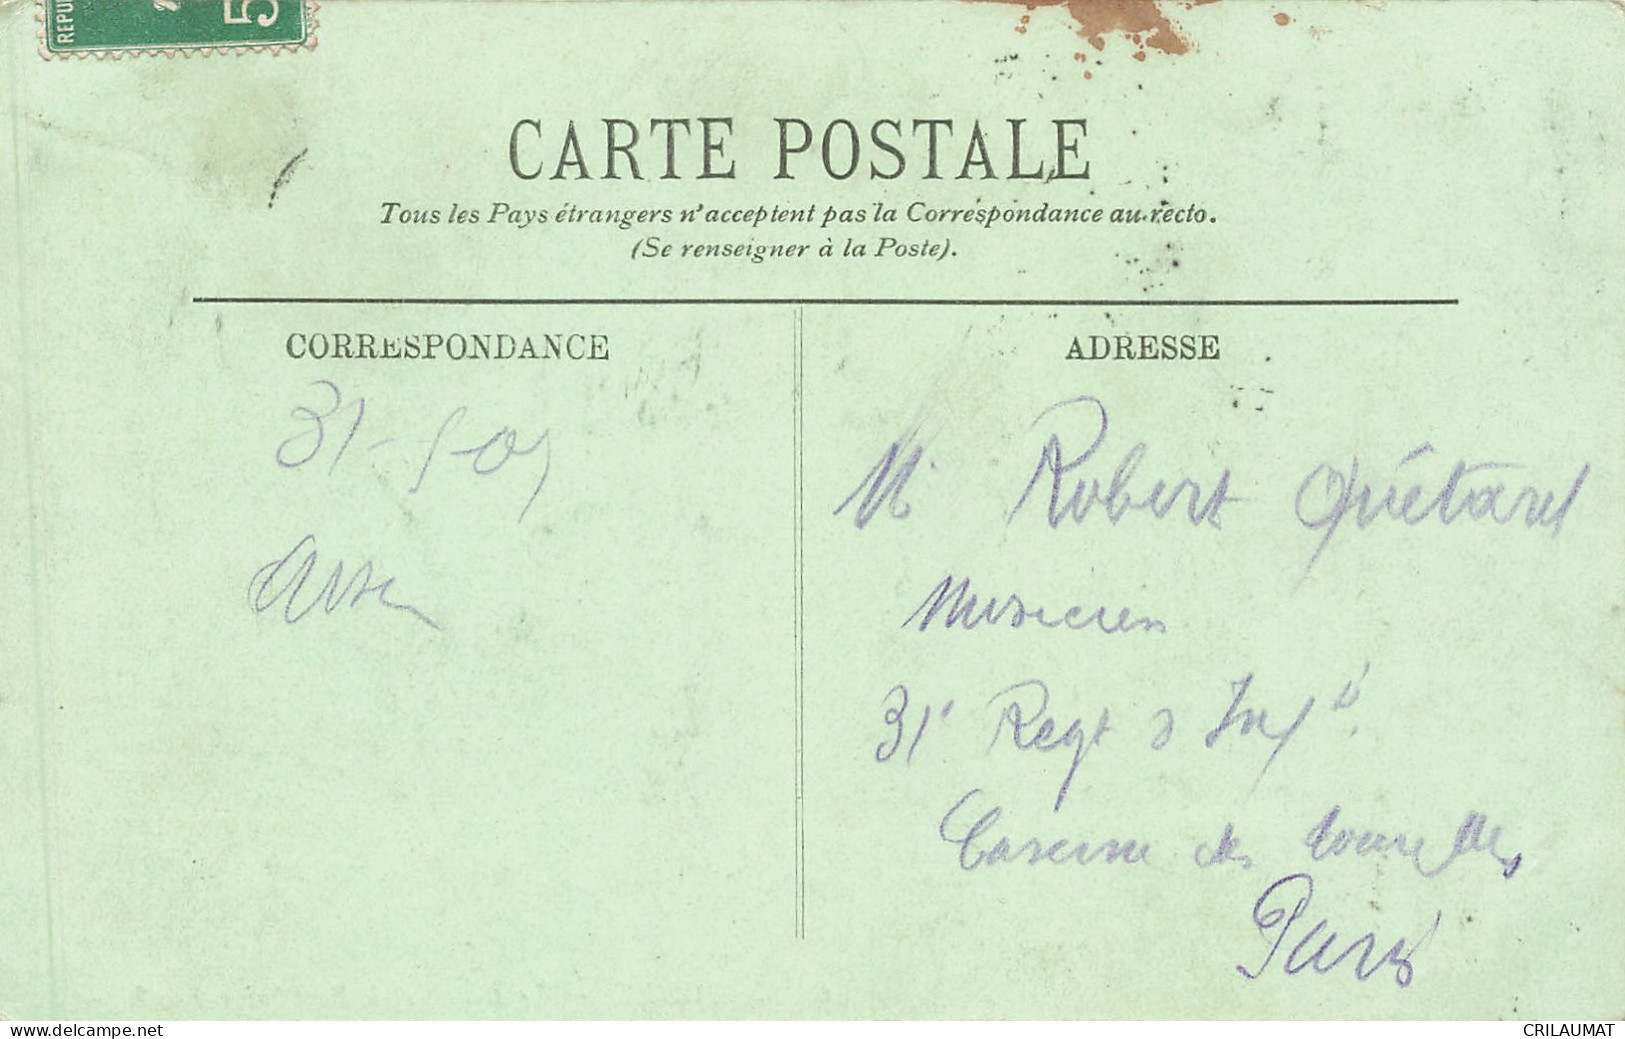 REPU
5
CARTE POSTALE
Tous les Pays étrangers n'acceptent pas la Correspondance au recto.
(Se renseigner à la Poste).
CORRESPONDANCE
ADRESSE
31-5-09
M Robert Quétard
Musicien
31e Regt d Inf ie
Caserne des tourelles
Paris
www.delcampe.net
CRILAUMAT